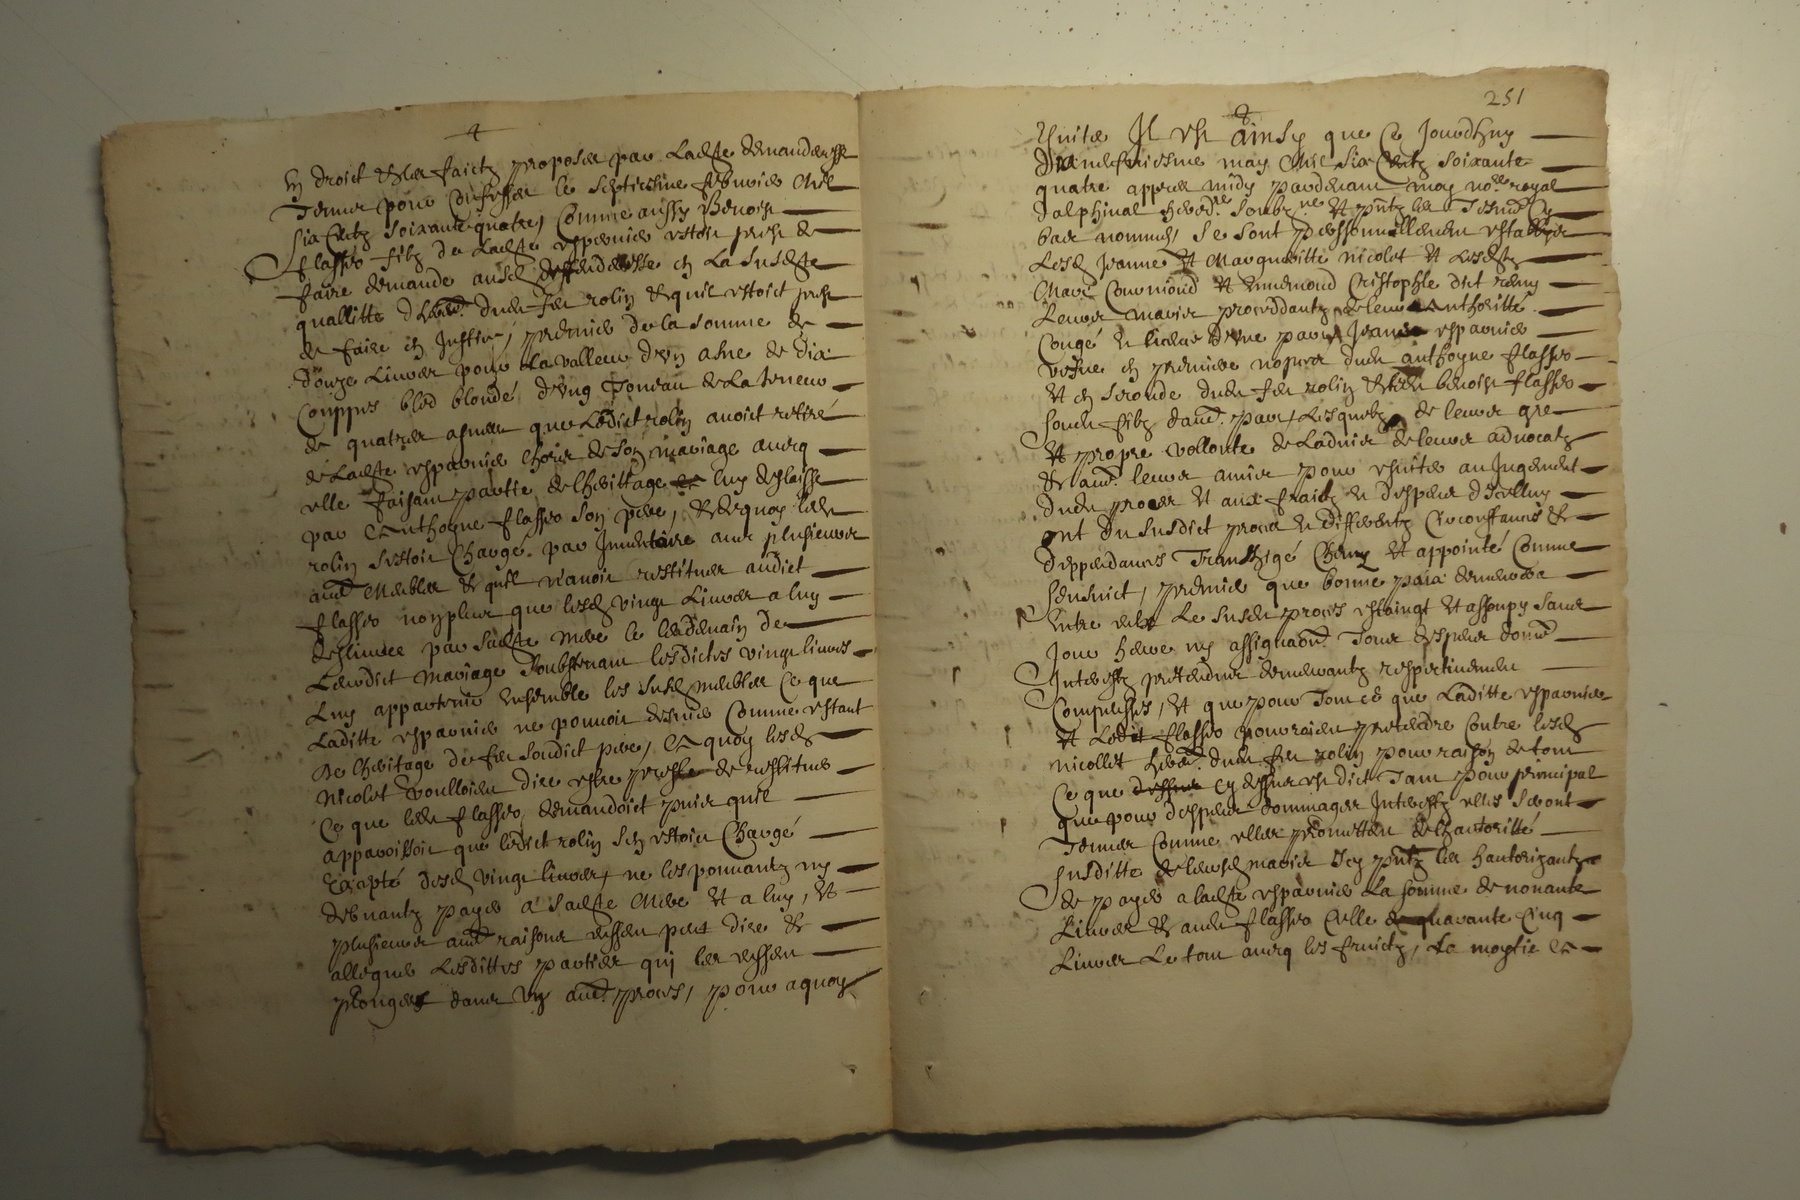 4
En droict & les faictz proposés par ladicte demanderesse
tenus pour confessés le septiesme febvrier mil
six centz soixante quatre, comme aussy Benoist
flassier filz de ladicte espaurier estoit prest de
faire demande ausdictz en la susdicte
quallitté d'herd. dudit feu rolin & quil estoict prest
de faire en justice, premier de la somme de
douze livres pour la valleur d'un asne de dix
couppes bled blondé d'ung tonneau de la teneur
de quatres asnées que ledict rolin avoict retiré
de ladicte espaurier lhors de son mariage avecq
elle faisant partie de lheritage luy deslaissé
par Anthoyne flassier son pere, & desquoy ledit
rolin sestoit chargé par inventaire avec plusieurs
aud. meubles & quil n'avoit restitués audict
flassier non plus que lesd. vingt livres a luy
par sadicte mere le lendemain de
leurdict mariage soubstenant lesdictes vingt livres
luy appartenir ensemble les susd. meubles ce que
laditte espaurier ne pouvoit desnier comme estant
de lheritage de feu soudict pere, A quoy lesd.
nicolet voulloient dire estre prestz de restituer
ce que ledit flassier demandoict puis quil
apparoissoit que ledict rolin sen estoit chargé
Excepté desd. vingt livres, ne les pouvantz ny
debvantz payer a sadicte mere & a luy, &
plusieurs aud. raisons eussent peut dire &
alleguer lesdittes parties qui les eussent
plonger dans un aud. proces, pour a quoy
251
8
Eviter Il est ainsy que ce jourdhuy
may mil six centz soixante
quatre appres midy pardevant moy nore. royal
dalphinal hered.re soubz.né & pntz les tesmoingz
bas nommés, se sont personnellement establyes
Lesd. Jeanne & Margueritte nicolet & lesdictz
Marc Courmond & Ennemond Cristophle dict remy
Leurs maris procedantz de leur anthoritté
Congé et licence d'une part, Jeanne espaurier
vefve en premiere nopces dudit anthoyne flassier
& en seconde dudit feu rolin & ledit benoist flassier
sondit filz d'aud. part, Lesquelz de leurs gre
& propre vollonte de ladvis de leurs advocatz
& aud. leurs amis pour eviter au jugement
dudit proces & aux fraictz et despens d'icelluy
ont du susdict proces et differentz circonstances &
deppendances transigé Chevy & appointé comme
sensuict, premier que bonne paix demeurera
Entre elles le susdit proces estaingt & assoupy sans
pour icelluy aud. tous despens domd.
Interestz pretendus demeurantz respectivement
Compensés, & que pour tout ce que laditte espaurier
& ledit flassier pouroient pretendre contre lesd.
nicollet hered. dudit feu rolin pour raison de tout
ce que cy dessus est dict tant pour principal
que pour despens dommages Interestz elles seront
tenues comme elles promettent de lhautoritté
susditte de leursd. maris Icy pntz les hauttorizantz
de payer a ladicte espaurier la somme de nonante
Livres & audit flassier celle de quarante cinq
Livres le tout avecq les fruictz, la moytie